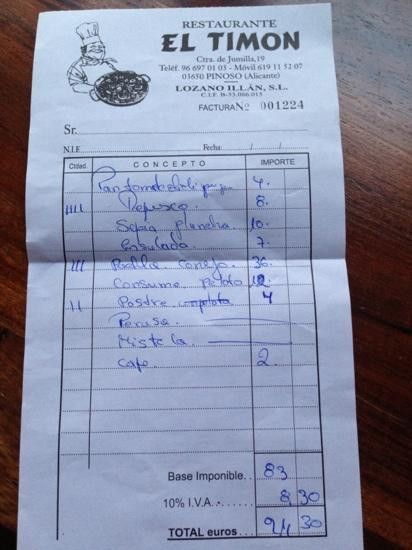 RESTAURANTE
EL TIMON
Ctra. de Jumilla,19
Teléf. 96 697 01 03 - Móvil 619 11 52 07
03650 PINOSO (Alicante)
LOZANO ILLÁN, S.L.
C.I.F. B-53.066.015
FACTURA Nº 001224
Sr.
N.I.F. Fecha: / /
Ctdad. CONCEPTO IMPORTE
Pan tomate 4.
Refresco 8.
Sepia plancha 10.
Ensalada 7.
Paella conejo. 36.
Consumo 12.
Postre 4
Perusa.
Mistela
Cafe 2.
Base Imponible. . 83
10% I.V.A. 8,30
TOTAL euros. . . 91 30